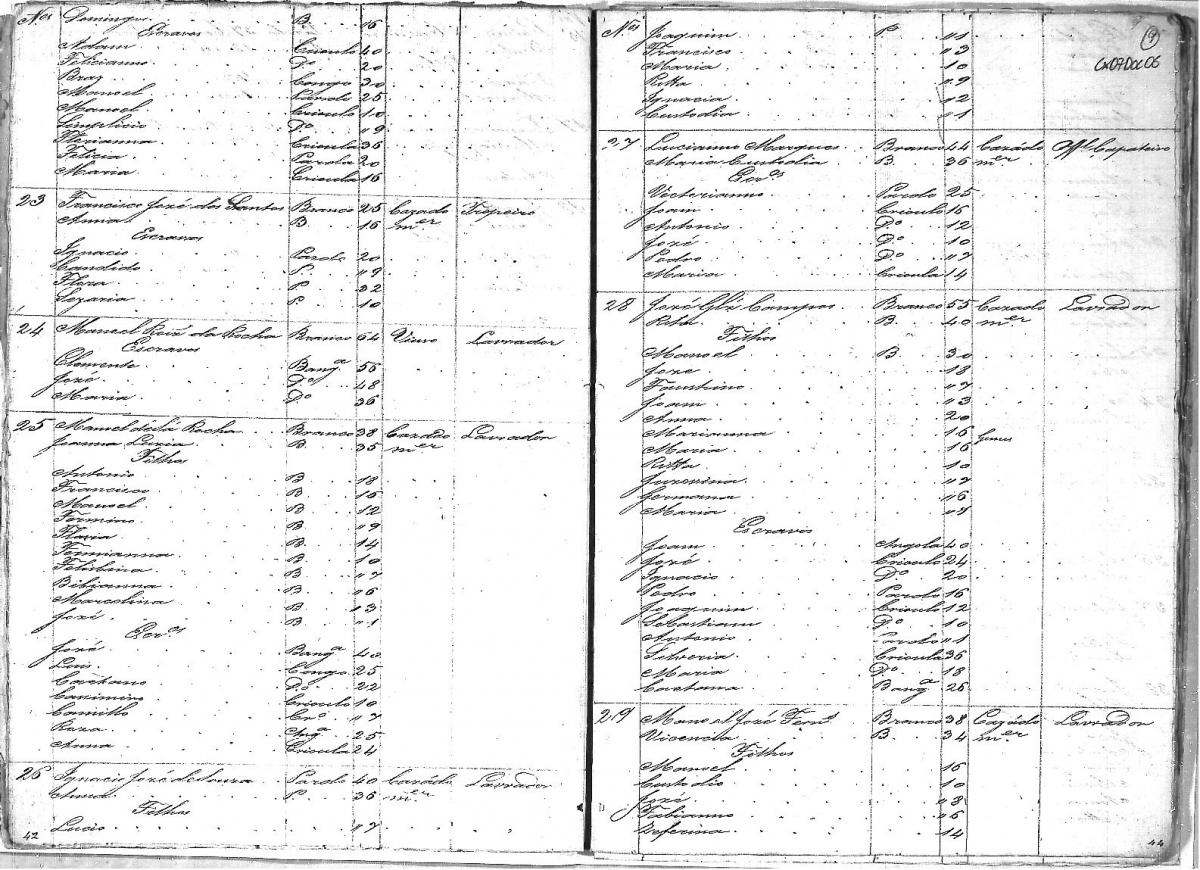 Nos Domingos B. 16
Escravos
Adam Crioulo 40
Felicianno Do 20
Braz Congo 30
Manoel Pardo 25
Manoel Crioulo 10
Simplicio Do 09
Marianna Crioula 36
Felicia Parda 20
Maria Crioula 16
23 Francisco Jozé dos Santos Branco 25 Cazado Tropeiro
Anna B. 16 mer
Escravos
Ignacio Pardo 20
Candido P. 09
Flora P. 22
Lezaria P. 10
24 Manoel Roiz da Rocha Branco 64 Viuvo Lavrador
Escravos
Clemente Banga 56
Jozé Do 48
Maria Do 36
25 Manoel Rocha Branco 38 Cazádo Lavrador
Joanna Luzia B. 35 mer
Filhos
Antonio B 18
Francisco B 16
Manoel B 12
Fermino B 09
Flavia B 14
Fermianna B 10
Felisbina B 07
Bibianna B 06
Marcelina B 03
Jozé B 01
Escros
Jozé Banga 40
Luis Congo 25
Caetano Do 22
Cazimiro Crioulo 10
Camillo Cro 07
Roza Anga 25
Anna Crioula 24
26 Ignacio Jozé de Souza Pardo 40 Cazádo Lavrador
Anna P. 36 mer
Filhos
Lucio 07
42
Nos Joaquim P. 01
Francisco 03
Maria 10
Ritta 09
Ignacia 02
Custodia 01
9
Cx07Doc06
27 Lucianno Marques Branco 44 Cazádo Offl Çapateiro
Maria Custodia B. 36 mer
Escros
Victorianno Pardo 25
Joam Crioulo 16
Antonio Do 12
Jozé Do 10
Pedro Do 07
Maria Crioula 14
28 Jozé Glz Campos Branco 55 Cazado Lavrador
Rita B. 40 mer
Filhos
Manoel B 30
Joze 18
Faustino 07
Joam 03
Anna 20
Marianna 16 Gemeas
Maria 16
Ritta 10
07
Germana 06
Maria 01
Escravos
Joam Angola 40
Jozé Crioulo 24
Ignacio Do 20
Pedro Pardo 16
Joaquim Crioulo 12
Sebastiam Do 10
Antonio Pardo 01
Silveria Crioula 36
Maria Do 18
Caetana Banga 26
29 Manoel Jozé Ferns Branco 38 Cazádo Lavrador
Vicencia B. 34 mer
Filhos
Manoel 16
Custodio 10
Jozé 08
Fabianno 06
Zeferina 14
44